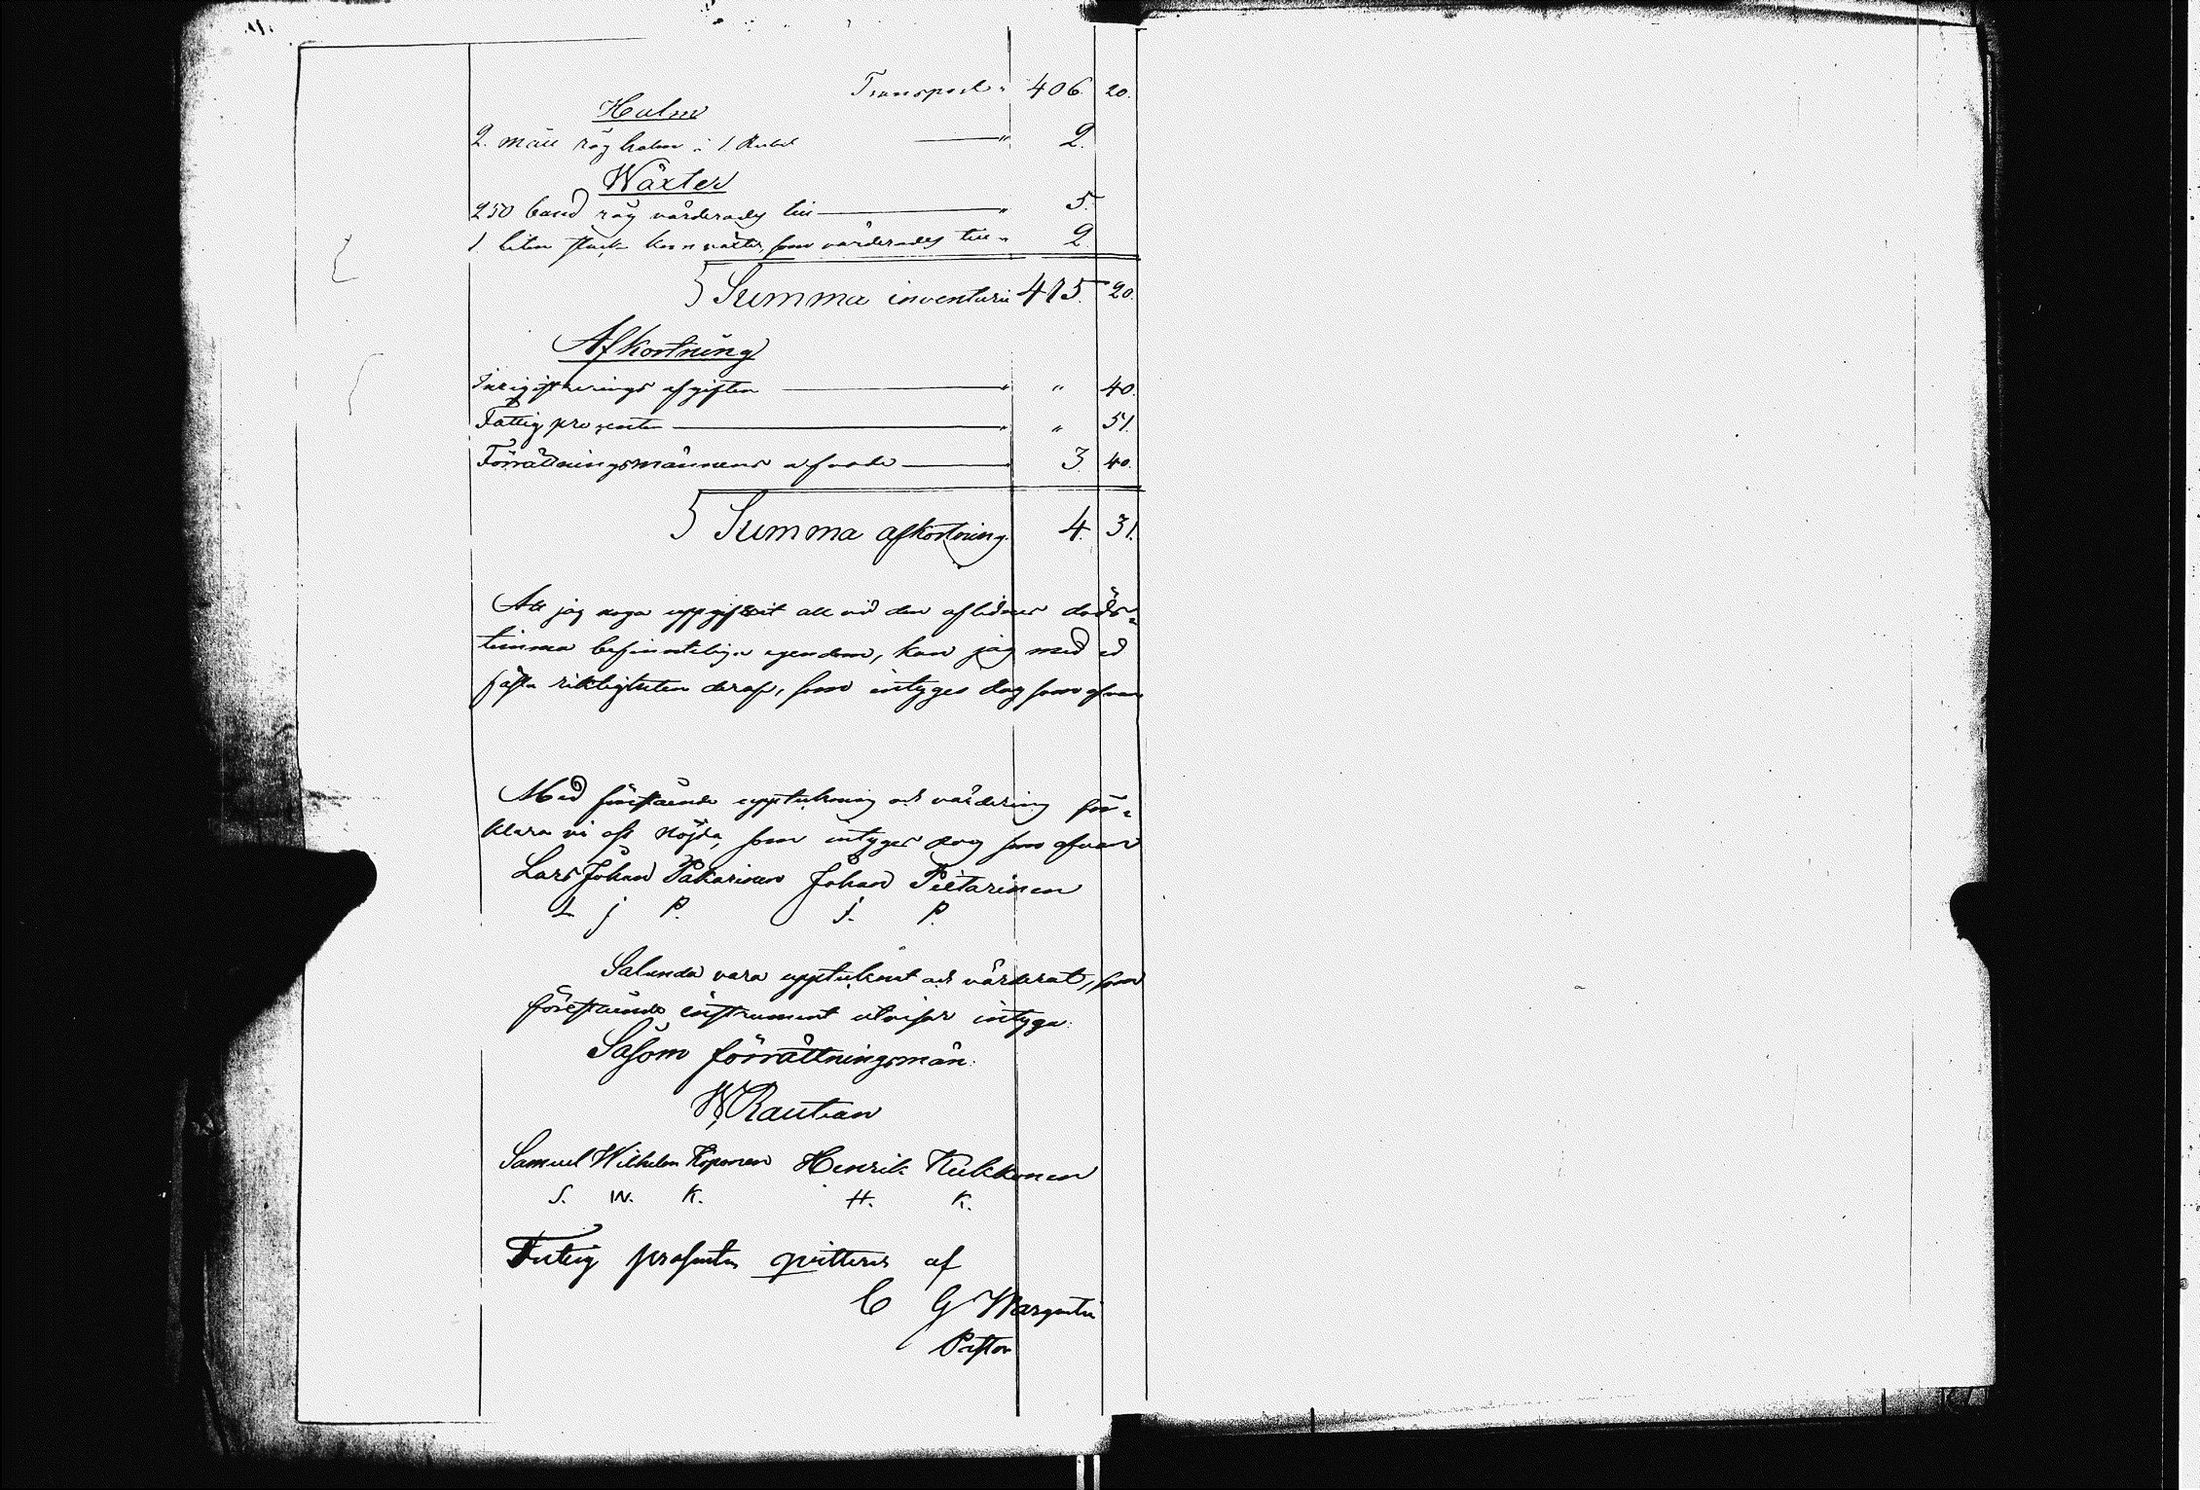 Transport " 406. 20.
Halm
2. måll råg halm à 1 Rubel " 2.
Wäxter
250 band råg värderades till " 5.
1 liten stuck korn växter, som värderades till " 2.
Summa inventarie 415. 20.
Afkortning
Inrigistrerings afgiften " " 40.
Fattig prosenten " " 51.
Förrättningsmännens arfvode 3. 40.
Summa afkortning. 4. 31.
Att jag noga uppgifvit all vid den aflidnes döds=
timma befinteliga egendom, kan jag med ed
fästa riktigheten deraf, som intyges dag som ofvan
Med förestående uppteckning och värdering för=
klara vi oss nöjda, som intyges dag som ofvan
Lars Johan Pakarinen Johan Pietarinen
L J P. J. P.
Sålunda vara upptecknat och värderat, som
förestående instrument utvisar intyga:
Såsom förrättningsmän:
W Rautian
Samuel Wilhelm Koponen Henrik Kukkonen
S. W. K. H. K.
Fattig prosenten qvitteras af
C G Wargentin
Pastor